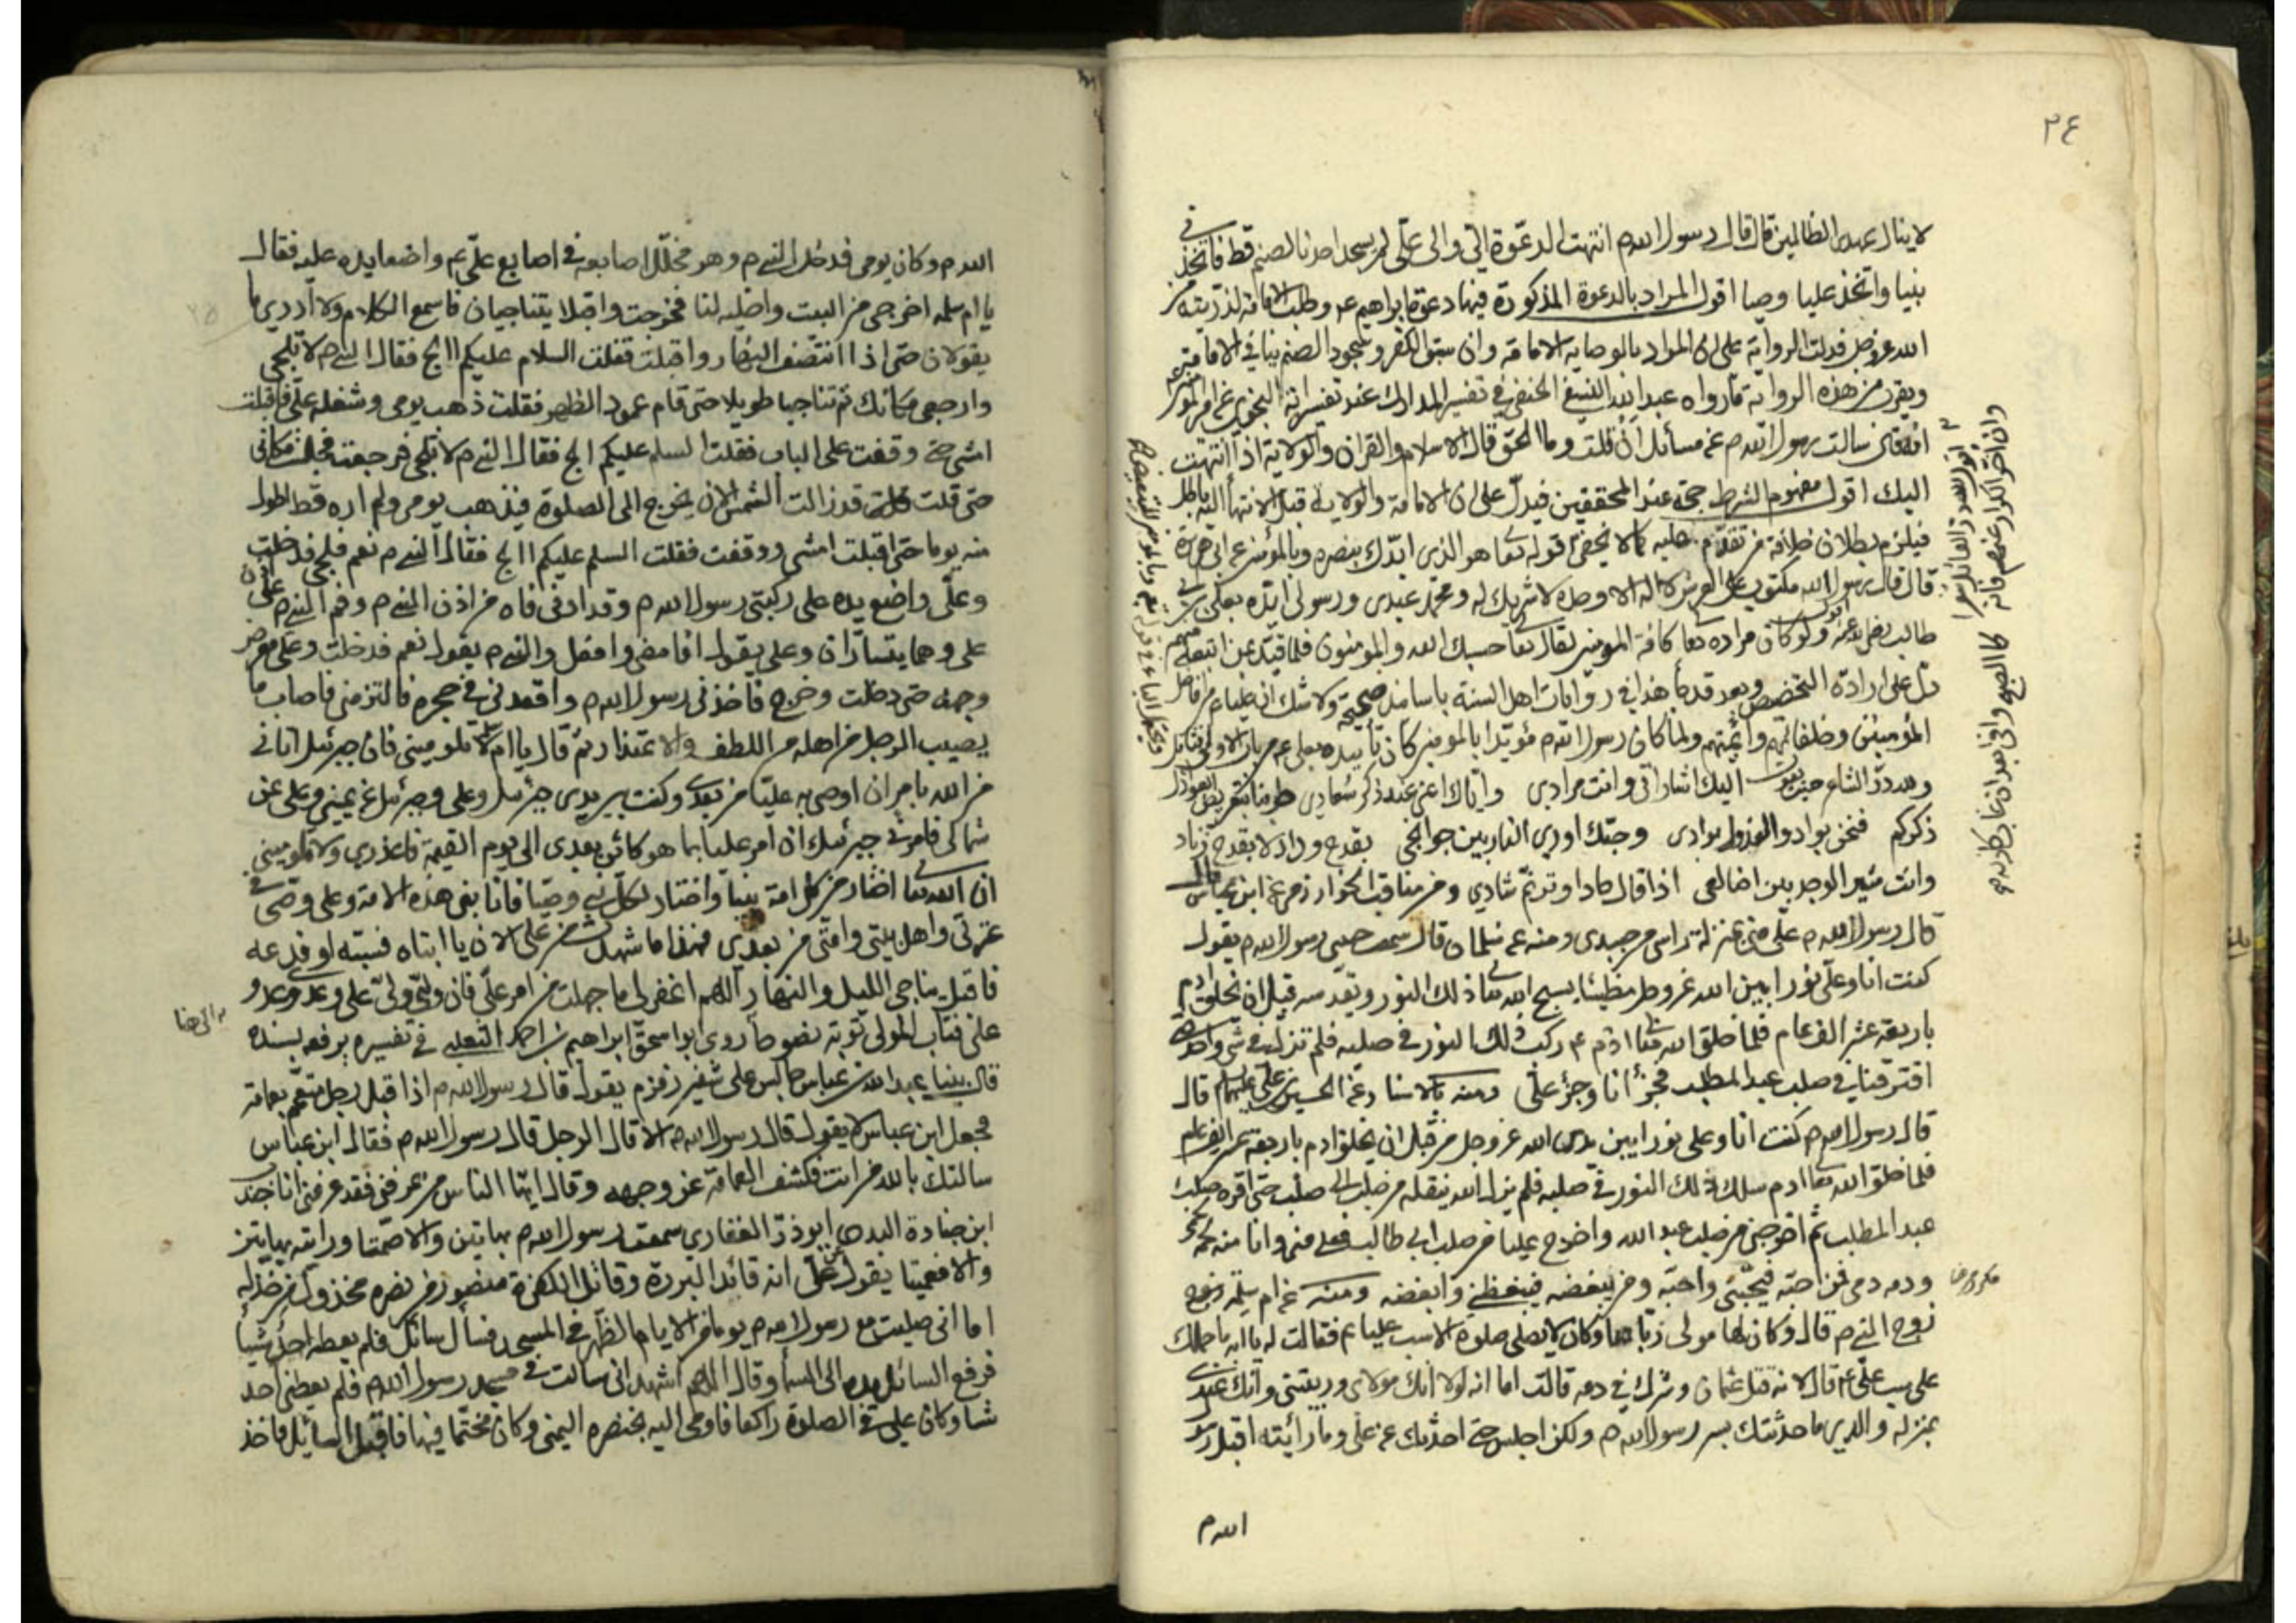 ٢٤
لا ينال عهدي الظالمين قال قال رسول الله م انتهت الدعوة الي والى علي لم يسجد احدنا لصنم قط فاتخذني
نبيا واتخذ عليا وصيا اقول المراد بالدعوة المذكورة فيها دعوة ابراهيم ع وطلب الامامة لذريته من
الله عز وجل فدلت الرواية على ان المراد بالوصاية الامامة وان سبق الكفر وسجود الصنم ينافي الامامة
ويقرب من هذه الرواية ما رواه عبد الله النسفي الحنفي في تفسير المدارك عند تفسير آية النجوى عن امير المؤمنين
انه قال سالت رسول الله م عن مسائل الى ان قلت وما الحق قال الاسلام والقران والولاية اذا انتهت
اليك اقول مفهوم الشرط حجة عند المحققين فيدل على ان الامامة والولاية قبل الانتهاء اليه باطل
فيلزم بطلان خلافة من تقدم عليه كما لا يخفى قوله تعا هو الذي ايدك بنصره وبالمؤمنين عن ابي هريرة
قال قال رسول الله مكتوب على العرش لا اله الا الله وحده لا شريك له ومحمد عبدي ورسولي ايدته بعلي بن ابي
طالب اقول ولو كان مراده تعا كافة المؤمنين لقال تعا حسبك الله والمؤمنون فلما قيد عن اتبعك منهم
دل على ارادة التخصيص وبعد قد جاء هذا في روايات اهل السنة باسانيد صحيحة ولا شك ان عليا ع من افاضل
المؤمنين وخلفائهم وائمتهم ولما كان رسول الله م مؤيدا بالمؤمنين كان تأييده بعلي ع من باب الاولى
ولله در الشاعر حيث يقول اليك اشاراتي وانت مرادي واياك اعني عند ذكر سعادي
ذكركم فنحن بواد والعذول بوادي وحبك اورى النار بين جوانحي بقدح وداد لا بقدح زناد
وانت مثير الوجد بين اضالعي اذا قال حاد او ترنم شادي ومن مناقب الخوارزمي عن ابن عباس قال
قال رسول الله م علي مني بمنزلة راسي من جسدي ومنه عن سلمان قال سمعت حبيبي رسول الله م يقول
كنت انا وعلي نورا بين الله عز وجل مطيعا يسبح الله تعا ذلك النور ويقدسه قبل ان يخلق ادم
باربعة عشر الف عام فلما خلق الله تعا ادم ع ركب ذلك النور في صلبه فلم نزل في شي واحد حتى
افترقنا في صلب عبد المطلب فجزء انا وجزء علي ومنه بالاسناد عن الحسين بن علي عليهما السلام قال
قال رسول الله م كنت انا وعلي نورا بين يدي الله عز وجل من قبل ان يخلق ادم باربعة عشر الف عام
فلما خلق الله تعا ادم سلك ذلك النور في صلبه فلم يزل الله ينقله من صلب الى صلب حتى اقره صلب
عبد المطلب ثم اخرجني من صلب عبد الله واخرج عليا من صلب ابي طالب فعلي مني وانا منه لحمه لحمي
ودمه دمي فمن احبه فيحبني واحبه ومن يبغضه فيبغضني وابغضه ومنه عن ام سلمة زوج
زوج النبي م قال وكان لها مولى رباها وكان لا يصلي صلوة الا سب عليا ع فقالت له يا ابه ما حملك
على سب علي ع قال لانه قتل عثمان وشرك في دمه قالت اما انه لولا انك مولاي وربيتني وانك عندي
بمنزلة والدي ما حدثتك بسر رسول الله م ولكن اجلس حتى احدثك عن علي وما رايته اقبل رسول
الله م
الله م وكان يومي فدخل النبي م وهو مخلل اصابعه في اصابع علي ع واضعا يده عليه فقال
يا ام سلمه اخرجي من البيت واخليه لنا فخرجت واقبلا يتناجيان فاسمع الكلام ولا ادري ما
يقولان حتى اذا انتصف النهار واقبلت فقلت السلام عليكم االج فقال النبي م لا تلجي
وارجعي مكانك ثم تناجيا طويلا حتى قام عمود الظهر فقلت ذهب يومي وشغله علي فاقبلت
امشي حتى وقفت على الباب فقلت السلم عليكم االج فقال النبي م لا تلجي فرجعت فجلست مكاني
حتى قلت قد زالت الشمس الان يخرج الى الصلوة فيذهب يومي ولم اره قط اطول
منه يوما حتى اقبلت امشي ووقفت فقلت السلم عليكم االج فقال النبي م نعم فلجي فدخلت
وعلي واضع يده على ركبتي رسول الله م وقد ادنى فاه من اذن النبي م وفم النبي م على اذن
علي وهما يتساران وعلي يقول افامضي وافعل والنبي م يقول نعم فدخلت وعلي معرض
وجهه حتى دخلت وخرج فاخذني رسول الله م واقعدني في حجره فالتزمني فاصاب ما
يصيب الرجل من اهله من اللطف والاعتذار ثم قال يا ام سلمة لا تلوميني فان جبرئيل اتاني
من الله بامر ان اوصي به عليا من بعدي وكنت بين يدي جبرئيل وعلي وجبرئيل عن يميني وعلي عن
شمالي فامرني جبرئيل ان امر عليا بما هو كائن بعدي الى يوم القيمة فاعذريني ولا تلوميني
ان الله تعا اختار من كل امة نبيا واختار لكل نبي وصيا فانا نبي هذه الامة وعلي وصيي في
عترتي واهل بيتي وامتي من بعدي فهذا ما شهدت من علي الان يا ابتاه فسبه او فدعه
فاقبل يناجي الليل والنهار اللهم اغفر لي ما جهلت من امر علي فان وليي ولي علي وعدوي عدو
علي فتاب المولى توبة نصوحا روى ابو اسحق ابراهيم بن احمد الثعلبي في تفسيره يرفعه بسنده
قال بينا عبد الله بن عباس جالس على شفير زمزم يقول قال رسول الله م اذا قبل رجل متعمم بعمامة
فجعل ابن عباس لا يقول قال رسول الله م الا قال الرجل قال رسول الله م فقال ابن عباس
سالتك بالله من انت فكشف العمامة عن وجهه وقال ايها الناس من عرفني فقد عرفني انا جندب
ابن جنادة البدري ابوذر الغفاري سمعت رسول الله م بهاتين والا صمتا ورايته بهاتين
والا فعميتا يقول عن علي انه قائد البررة وقاتل الكفرة منصور من نصره مخذول من خذله
اما اني صليت مع رسول الله م يوما من الايام الظهر في المسجد فسأل سائل فلم يعطه احد شيأ
فرفع السائل يده الى السماء وقال اللهم اشهد اني سالت في مسجد رسول الله م فلم يعطني احد
شيا وكان علي في الصلوة راكعا فاومى اليه بخنصره اليمنى وكان مختما فيها فاقبل السائل فاخذ